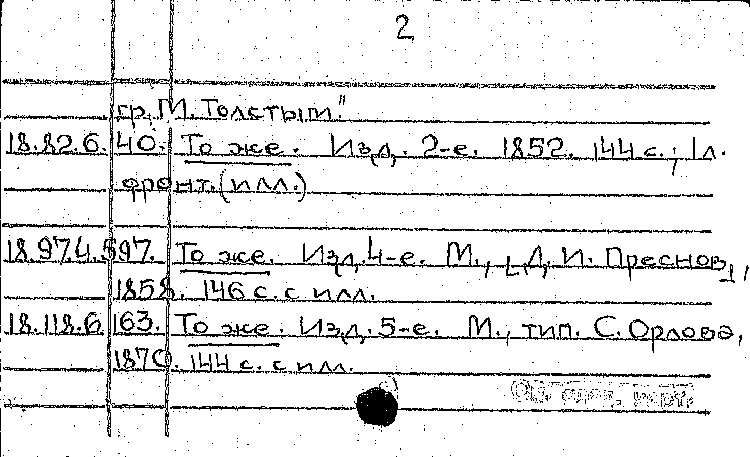 2
гр. М. Толстым."
18.82.6.40. То же. Изд. 2-е. 1852. 144 с.; 1 л.
фронт. (илл.)
18.974.597. То же. Изд. 4-е. М., [Д. И. Преснов],
1858. 146 с. с илл.
18.118.6.163. То же. Изд. 5-е. М., тип. С. Орлова,
1870. 144 с. с илл.